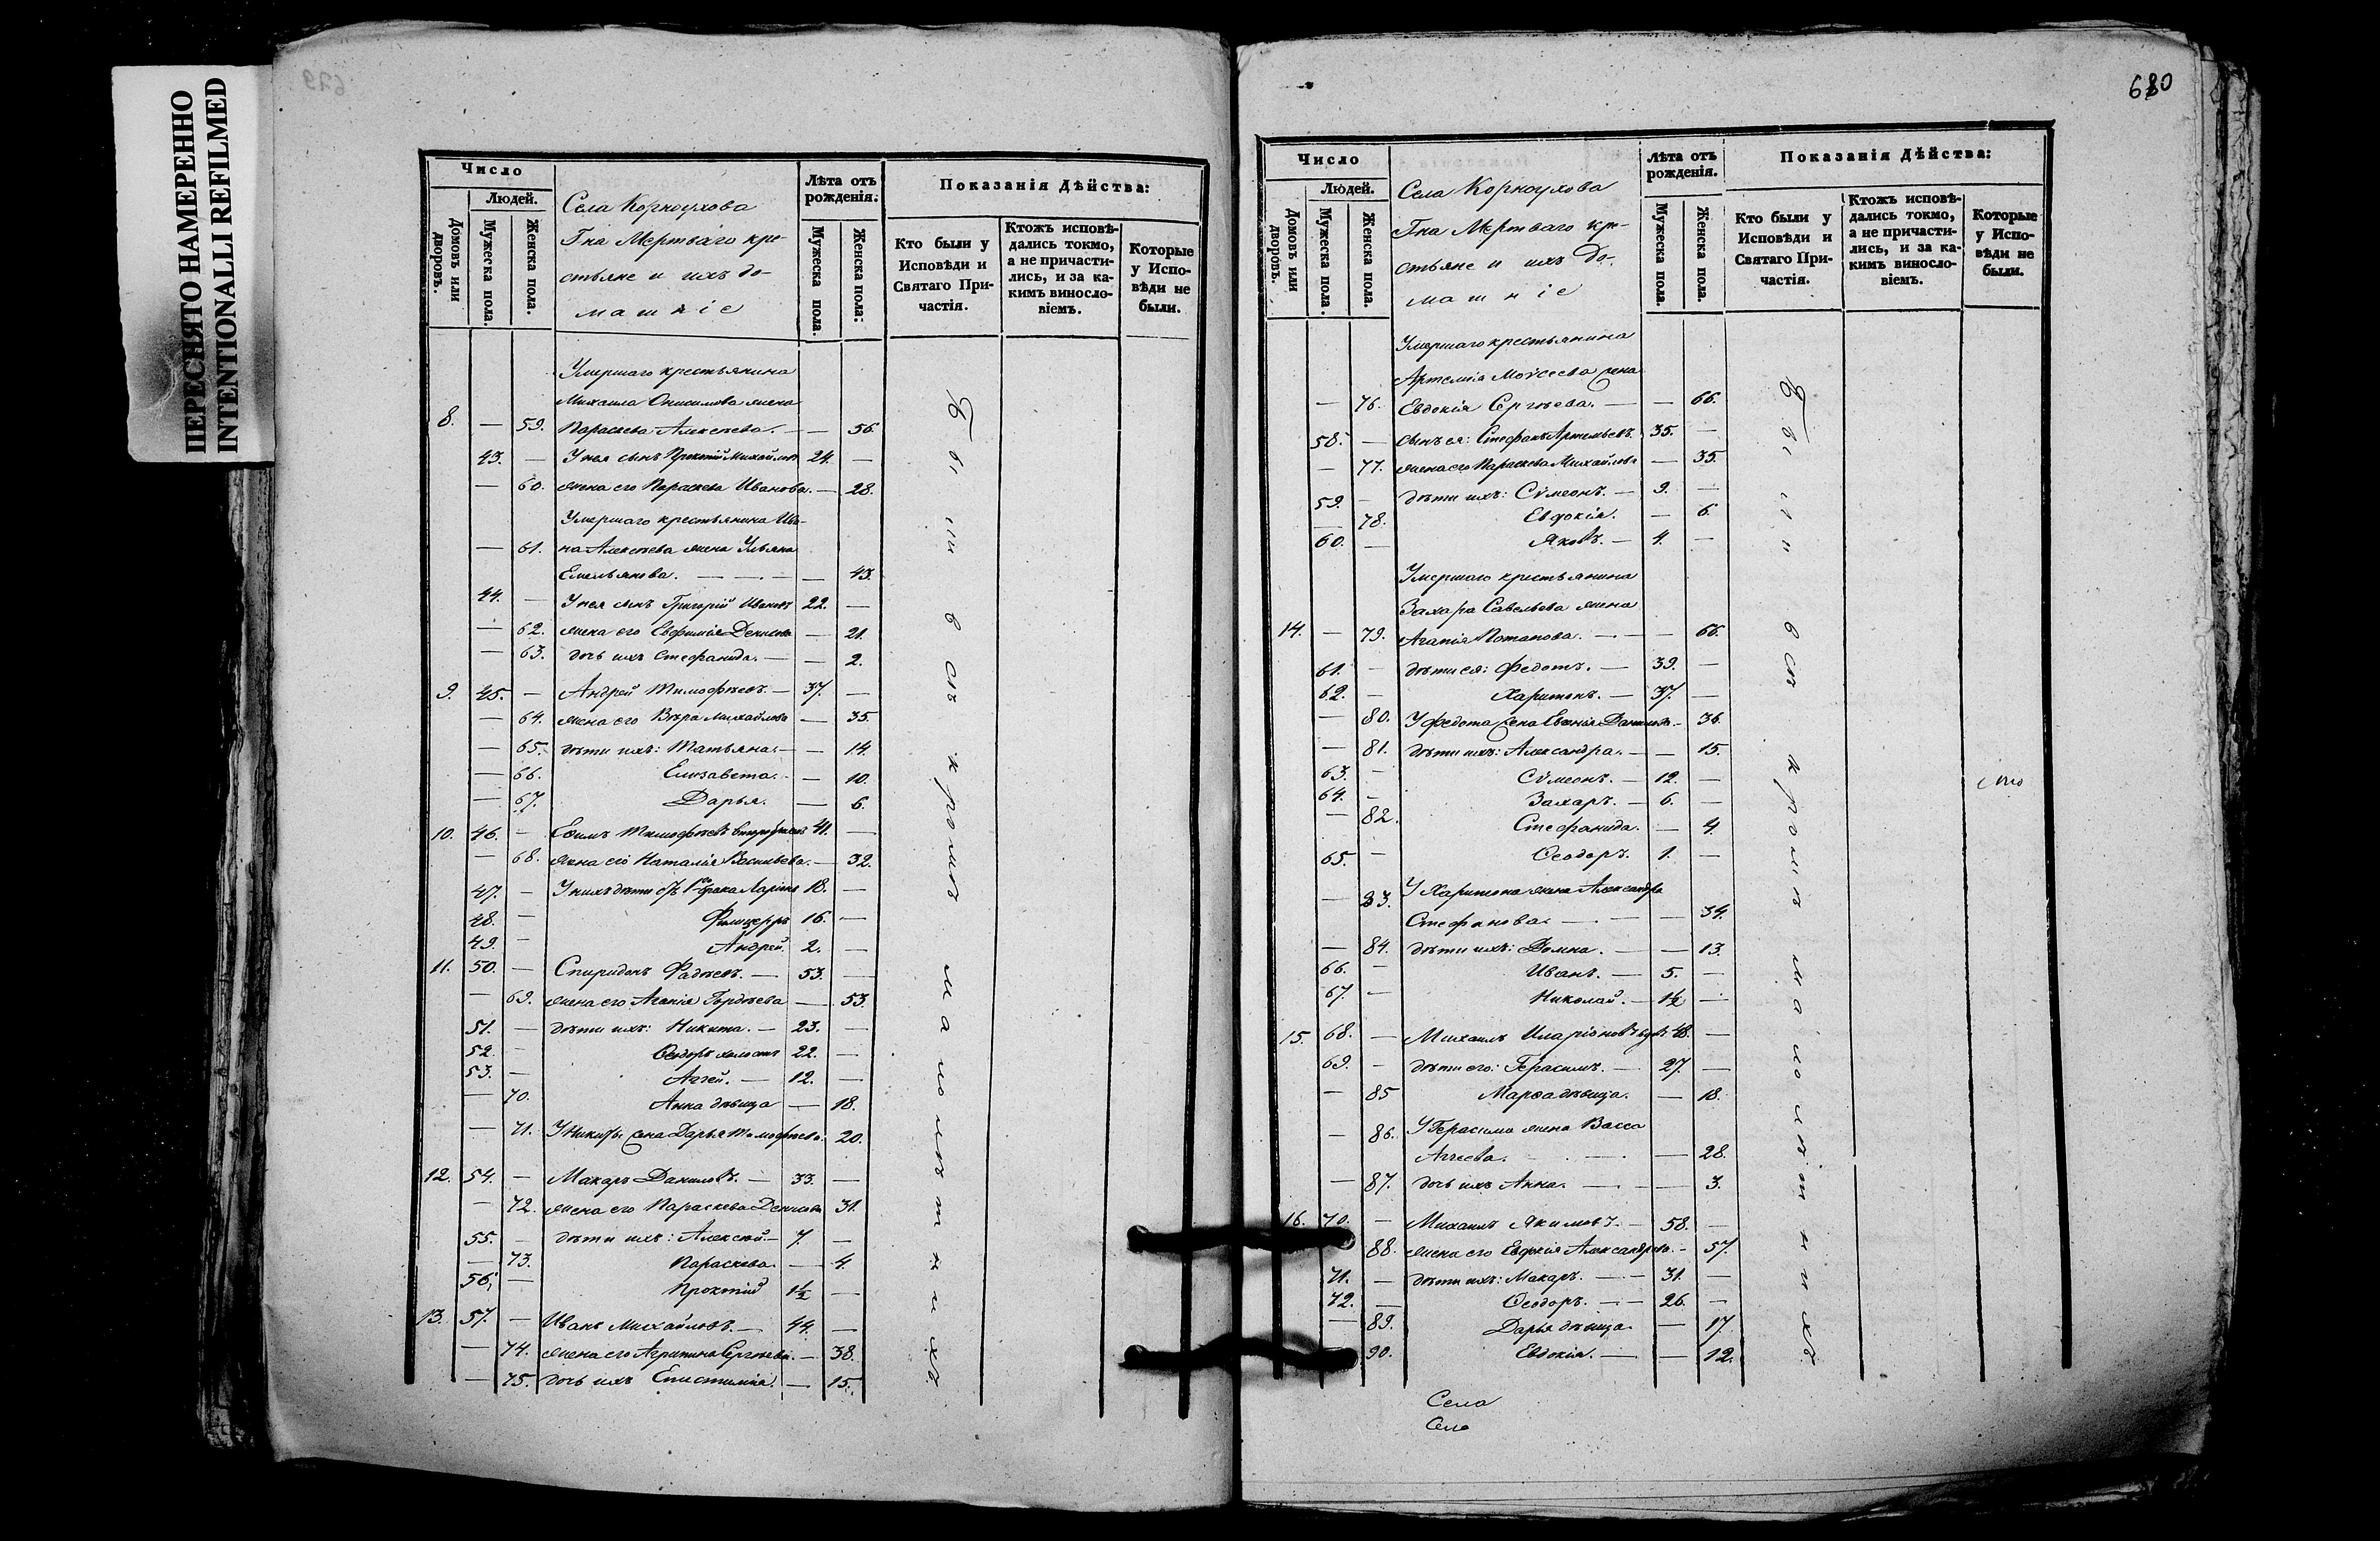 ПЕРЕСНЯТО НАМЕРЕННО
INTENTIONALLI REFILMED
679
Число
Людей.
Домовъ или дворовъ.
Мужеска пола.
Женска пола.
Села Корноухова
Гна Мертваго кре-
стьяне и ихъ до-
машніе
Лѣта отъ рожденія:
Мужеска пола.
Женска пола:
Показанія Дѣйства:
Кто были у Исповѣди и Святаго При-частія.
Ктожъ исповѣ-дались токмо, а не причасти-лись, и за ка-кимъ винослo-віемъ.
Которые у Испо-вѣди не были.
Умершаго крестьянина
Михаила Онисимова жена
8. — 59. Параскева Алексѣева. — — 56.
43. — У нея сынъ Прокопій Михайловъ 24. —
— 60. жена его Параскева Иванова. — 28.
Умершаго крестьянина Ива-
— 61. на Алексѣева жена Ульяна
Емельянова. — — — 43.
44. — У нея сынъ Григорій Ивановъ 22. —
— 62. жена его Евфимія Денисова — 21.
— 63. дочь ихъ Стефанида. — — 2.
9. 45. — Андрей Тимофѣевъ. — 37. —
— 64. жена его Вѣра Михайлова — 35.
— 65. дѣти ихъ: Татьяна. — — 14.
— 66. Елизавета. — — 10.
— 67. Дарья. — 6.
10. 46. — Ефимъ Тимофѣевъ 41. —
— 68. жена его Наталія Васильева. — 32.
47. — У нихъ дѣти отъ 1го брака Ларіонъ 18. —
48. — 16. —
49. — Андрей. 2. —
11. 50. — Спиридонъ Фадѣевъ. — 53. —
— 69. жена его Агапія Гордѣева — 53.
51. — дѣти ихъ: Никита. — 23. —
52. — Ѳеодоръ холостъ 22. —
53. — Аггей. — 12. —
— 70. Анна дѣвица — 18.
— 71. У Никиты жена Дарья Тимофѣева. 20.
12. 54. — Макаръ Даниловъ. — 33. —
— 72. жена его Параскева Денисова 31.
55. — дѣти ихъ: Алексѣй — 7. —
— 73. Параскева. — 4.
56. — Прокопій 1½ —
13. 57. — Иванъ Михайловъ. — 44. —
— 74. жена его Агрипина Сергѣева. — 38.
— 75. дочь ихъ Епистимія. — 15.
Были всѣ кромѣ малолѣтнихъ.
680
Число
Людей.
Домовъ или дворовъ.
Мужеска пола.
Женска пола.
Села Корноухова
Гна Мертваго кре-
стьяне и ихъ до-
машніе
Лѣта отъ рожденія.
Мужеска пола.
Женска пола.
Показанія Дѣйства:
Кто были у Исповѣди и Святаго При-частія.
Ктожъ исповѣ-дались токмо, а не причасти-лись, и за ка-кимъ винослo-віемъ.
Которые у Испо-вѣди не были.
Умершаго крестьянина
Артемія Моѵсеева жена
— 76. Евдокія Сергѣева. — — 66.
58. — сынъ ея: Стефанъ Артемьевъ. 35. —
— 77. жена его Параскева Михайлова — 35.
59. — дѣти ихъ: Сѵмеонъ. — 9. —
— 78. Евдокія. — 6.
60. — Яковъ. — 4. —
Умершаго крестьянина
Захара Савельева жена
14. — 79. Агапія Потапова. — — 66.
61. — дѣти ея: Федотъ. — 39. —
62. — Харитонъ. — 37. —
— 80. У Федота жена Данилова — 36.
— 81. дѣти ихъ: Александра. — — 15.
63. — Сѵмеонъ. — 12. —
64. — Захаръ. — 6. —
— 82. Стефанида. — 4.
65. — Ѳеодоръ. 1. —
— 83. У Харитона жена Александра
Стефанова. — — — 34.
— 84. дѣти ихъ: Домна. — — 13.
66. — Иванъ. — 5. —
67. — Николай. — 1½ —
15. 68. — Михаилъ Иларіоновъ вдовъ 48. —
69. — дѣти его: Герасимъ. — 27. —
— 85 Марѳа дѣвица. — 18.
— 86. У Герасима жена Васса
Аггеева. — — 28.
— 87. дочь ихъ Анна. — — 3.
16. 70. — Михаилъ Якимовъ. — 58. —
88. жена его Евдокія Александрова. — 57.
71. — дѣти ихъ: Макаръ. — — 31. —
72. — Ѳеодоръ. — — 26. —
— 89. Дарья дѣвица. — 17.
90. Евдокія. — — 12.
Были всѣ кромѣ малолѣтнихъ.
Села
Села